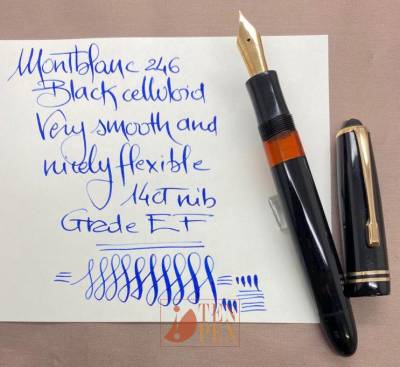 Montblanc 246
Black celluloid
Very smooth and
nicely flexible
14ct nib
Grade EF
TEN
PEN